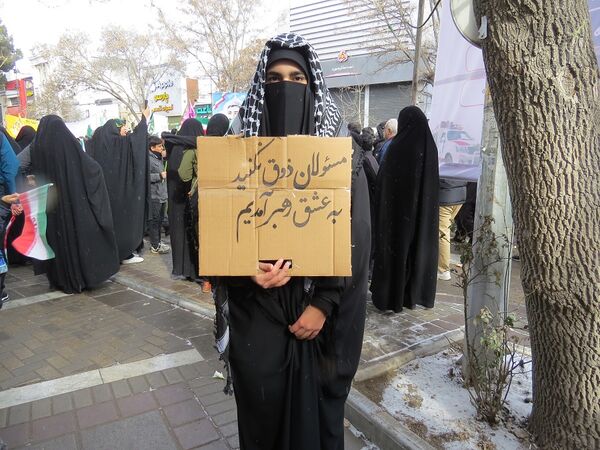 مسئولان ذوق نکنید
به عشق رهبر آمدیم